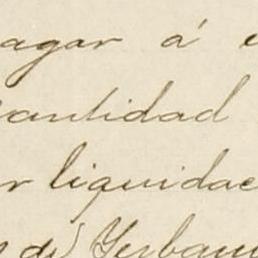 agar á
cantidad
r liquidac
de Yerbam